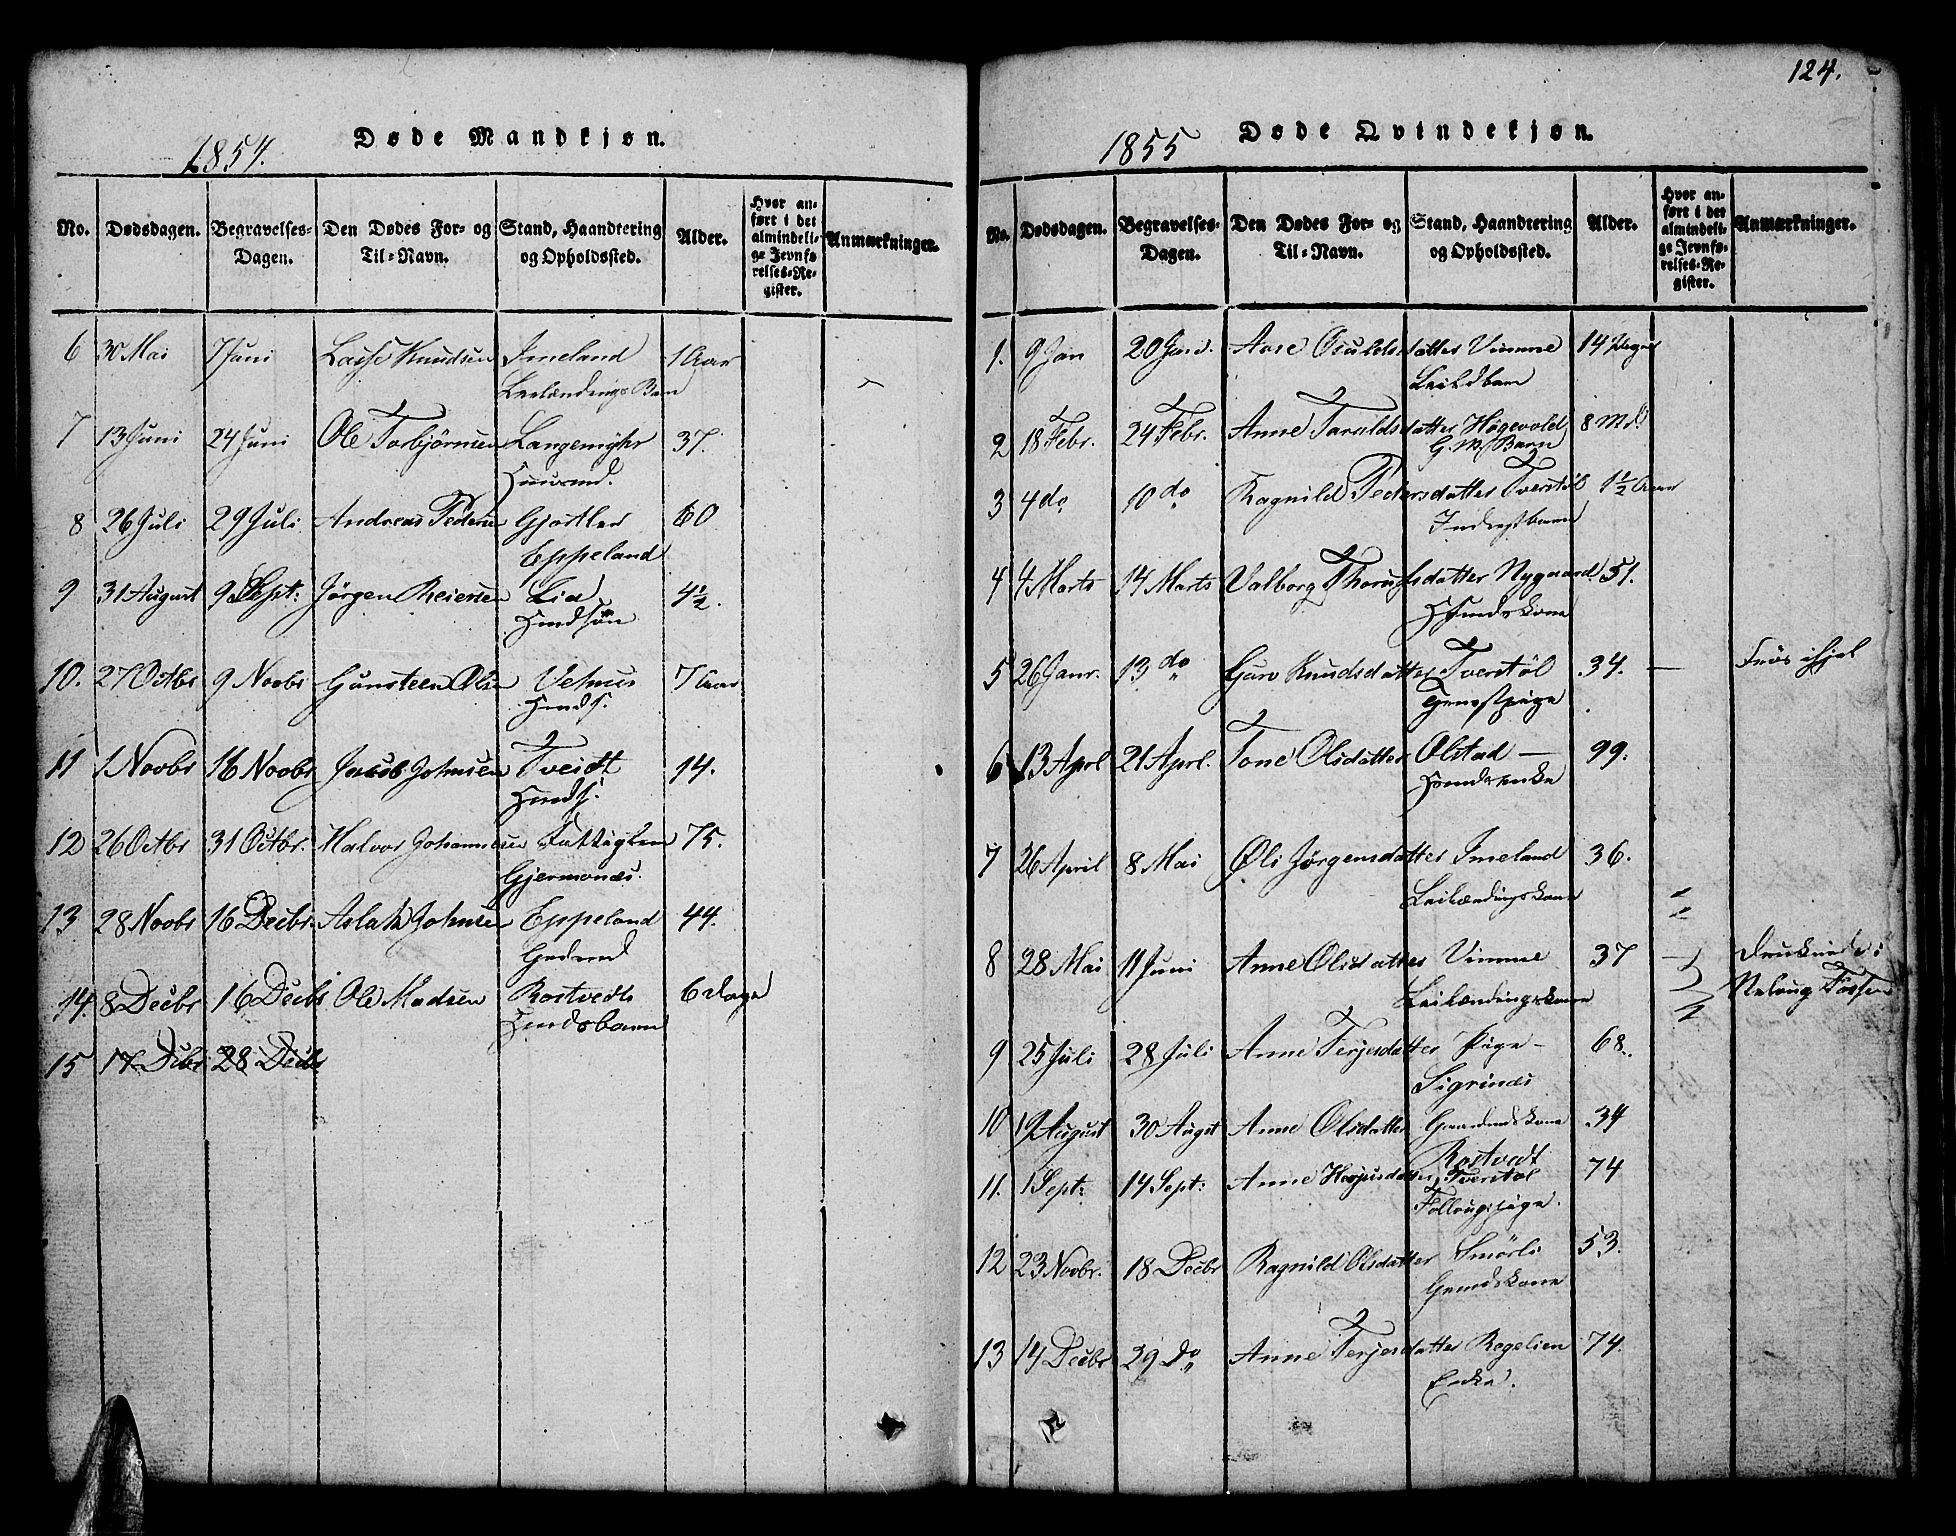 1854.
Døde Mandkjøn.
No. Dødsdagen. Begravelses-Dagen. Den Dødes For- og Til-Navn. Stand, Haandtering og Opholdssted. Alder. Hvor anført i det almindelige Jevnførelses-Register. Anmærkninger.
6 30 Mai 7 Juni Lasse Knudsen Imeland 1 Aar
Leilændings Barn
7 13 Juni 24 Juni Ole Torbjørnsen Langemyhr 37.
Huusmd.
8 26 Juli 29 Juli Andreas Pedersen Gjørtler 60
Eppeland
9 31 August 9 Sept: Jørgen Reiersen Lia 4½.
Hmdsøn
10. 27 Octbr 9 Novbr Gunsteen Olsen Vehus 7 Aar
Hmds.
11 1 Novbr 16 Novbr Jacob Johnsen Tveidt 14.
Hmds.
12 26 Octbr 31 Octbr. Halvor Johannesen Fattiglem 75.
Gjermonæs.
13 28 Novbr 16 Decbr. Aslak Johnsen Eppeland 44.
Grdmd
14. 8 Decbr 16 Decbr Ole Madsen Rostvedt 6 Dage
Hmdsbarn
15 17 Decbr 28 Decbr
124.
1855
Døde Qvindekjøn.
No. Dødsdagen. Begravelses-Dagen. Den Dødes For- og Til-Navn. Stand, Haandtering og Opholdssted. Alder. Hvor anført i det almindelige Jevnførelses-Register. Anmærkninger.
1. 9 Jan 20 Jan. Aase Osuldsdatter Vimme 14 Dager
Leildbarn
2 18 Febr. 24 Febr. Anne Taraldsdatter Høgevold 8 Md.
G. M. Barn
3 4 do 10 do Ragnild Pedersdatter Tverstøl 1½ Aar
Inderstbarn
4 4 Marts 14 Marts Valborg Thorufsdatter Nygaard 51.
Hmdskone
5 26 Janr. 13 do Guro Knudsdatter Tverstøl 34. — Frøs ihjel
Tjenestpige
6 13 Aprl 21 Aprl. Tone Olsdatter Olstad — 99.
Hmdsenke
7 26 April 8 Mai Øli Jørgensdatter Imeland 36.
Leilændingskone
8 28 Mai 11 Juni Anne Olsdatter Vimme 37 — Druknede i
Leilændingskone Nelaug Fossen
9 25 Juli 28 Juli Anne Terjesdatter Pige — 68.
Sigrinæs
10 19 August 30 Augst Anne Olsdatter Gaardmdskone 34
Rostvedt
11. 1 Sept: 14 Sept: Anne Herjusdatter Tverstøl 74
Follaugspige.
12 23 Novbr. 18 Decbr Ragnild Olsdatter Smørli 53.
Grmdskone
13 14 Decbr 29 Do Anne Terjesdatter Regelien 74.
Enke.